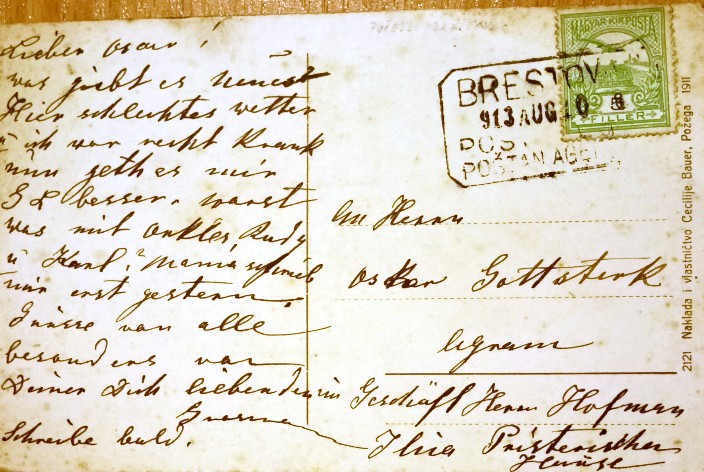 Lieber Oscar!
was giebt es neues
Hier schlechtes wetter
u ich war recht Krank
nun geth es mir
besser. warst
was mit Onkles Rudy
u Karl? Mama schrieb
mir erst gestern.
Grüsse von alle
besonders von
Deiner Dich liebenden
Schreibe bald.
MAGYAR KIR. POSTA
FILLER
BRESTOV
913 AUG 10
POŠTAN. AGEN
An Herrn
Oskar Gottsterk
Agram
Geschäft Herrn Hofman
Ilica
Hause
2121 Naklada i vlastničtvo Cecilije Bauer, Požega 1911